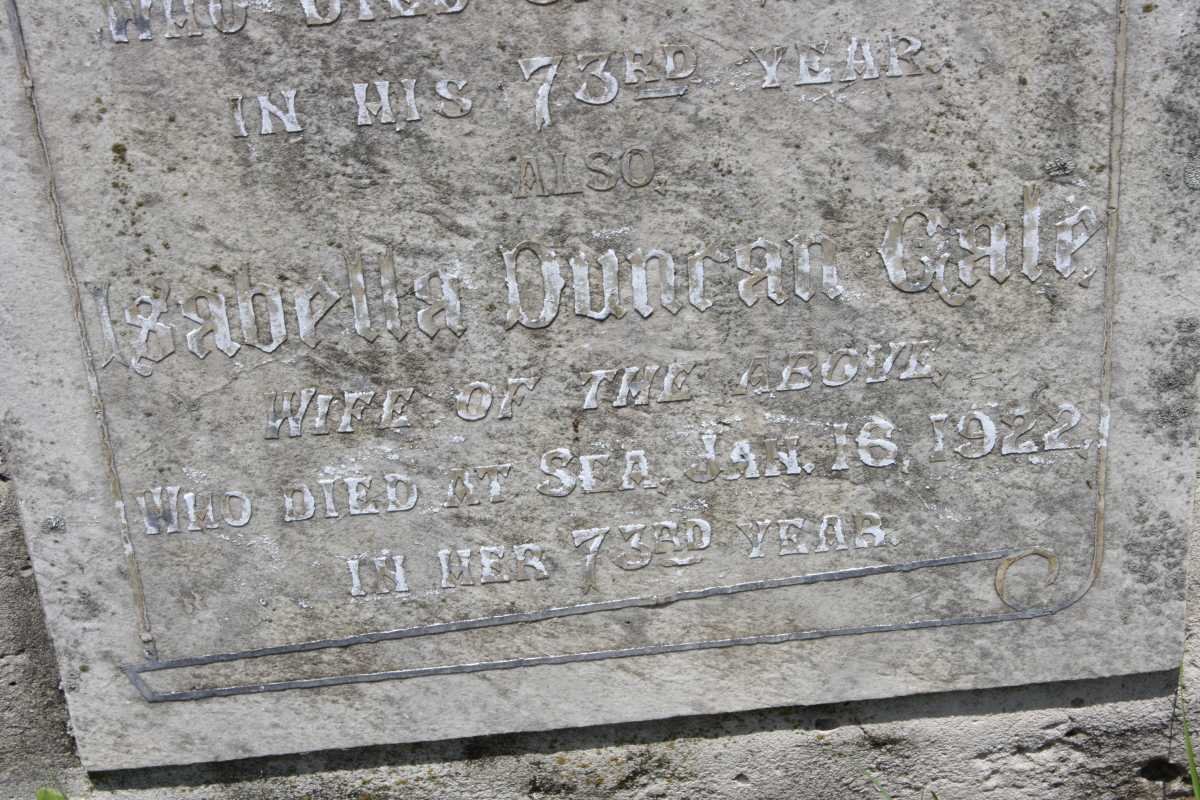 WHO DIED
IN HIS 73RD YEAR.
ALSO
Isabella Duncan Gale,
WIFE OF THE ABOVE
WHO DIED AT SEA, JAN. 16, 1922,
IN HER 73RD YEAR.